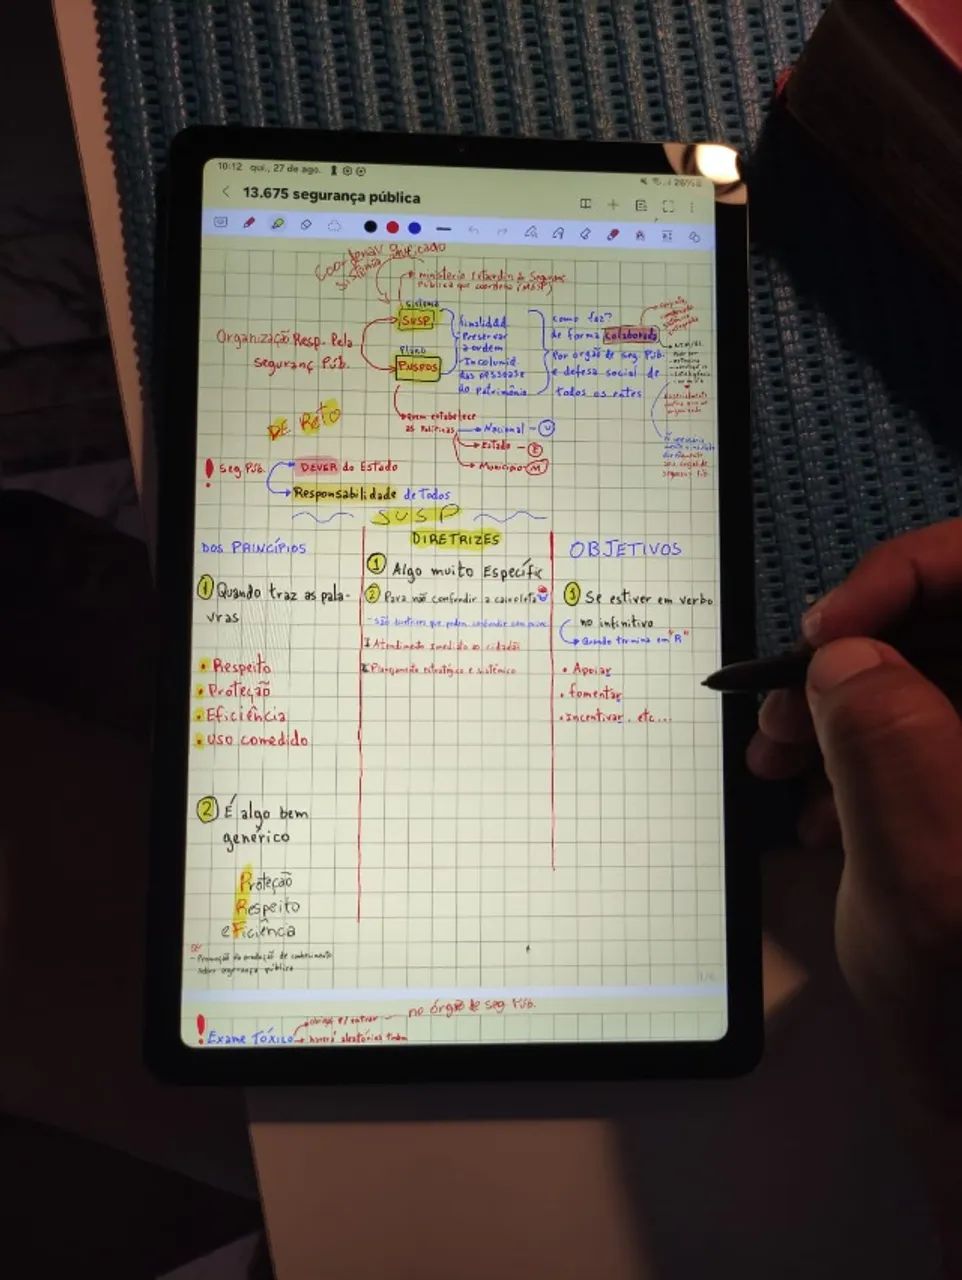 10:12 qui., 27 de ago.
26%
13.675 segurança pública
Coordenar
sistema unificado
ministerio Extaordin de Seguranç
Pública que coordena (MESP)
sistema
SUSP
Organização Resp. Pela
seguranç Púb.
Plano
PNSPDS
finalidad.
- Preservar
a ordem
- Incolumid
das pessoas e
do patrimônio
como faz?
de forma colaborada
Por órgão de seg. Púb.
e defesa social de
todos os entes
conjunta,
coordenada
sistêmica
integrada
DE Reto
Quem estabelece
as Políticas
Nacional - U
Estado - E
Município - M
! Seg. Púb.
DEVER do Estado
Responsabilidade de Todos
SUSP
DOS PRINCÍPIOS
1 Quando traz as pala-
vras
• Respeito
• Proteção
• Eficiência
• Uso comedido
2 É algo bem
genérico
Proteção
Respeito
eficiência
- Promoção da produção de conhecimento
sobre segurança pública
DIRETRIZES
1 Algo muito Específic
2 Para não confundir a cabeleta
- são diretrizes que podem confundir com princ.
I Atendimento imediato ao cidadão
II Planejamento estratégico e sistêmico
OBJETIVOS
1 Se estiver em verbo
no infinitivo
Quando termina em "R"
• Apoiar
• fomentar
• Incentivar. etc...
1/6
! Exame Tóxico
obrig p/ entrar
no órgão de seg. Púb.
haverá aleatórios tbém